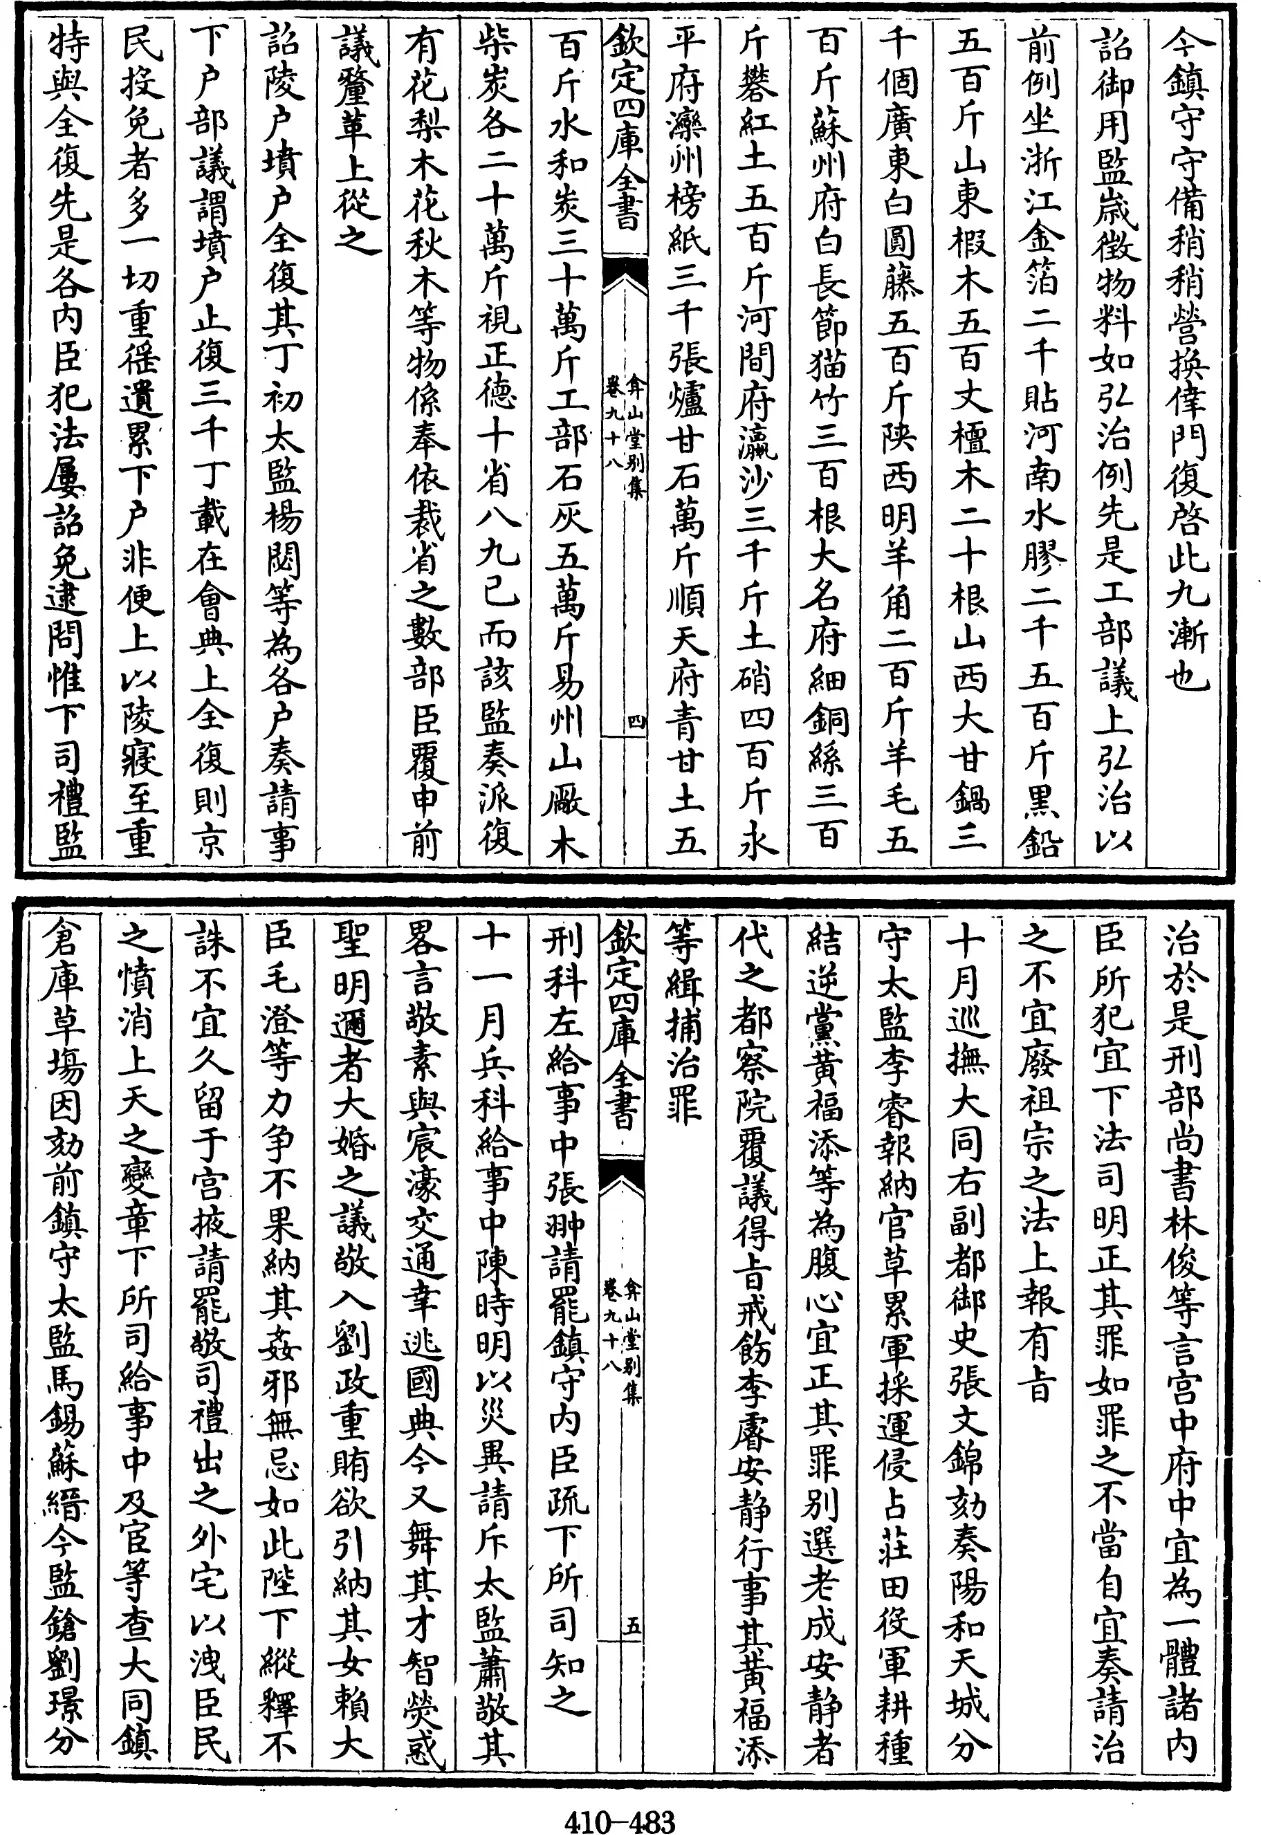 今鎮守守備稍稍營換倖門復啓此九漸也
詔御用監歲徴物料如弘治例先是工部議上弘治以
前例坐浙江金箔二千貼河南水膠二千五百斤黒鉛
五百斤山東椵木五百丈檀木二十根山西大甘鍋三
千個廣東白圓藤五百斤陜西明羊角二百斤羊毛五
百斤蘇州府白長節猫竹三百根大名府細銅絲三百
斤礬紅土五百斤河間府瀛沙三千斤土硝四百斤永
平府灤州榜紙三千張爐甘石萬斤順天府青甘土五
欽定四庫全書
弇山堂别集
卷九十八
四
百斤水和炭三十萬斤工部石灰五萬斤易州山厰木
柴炭各二十萬斤視正德十省八九已而該監奏派復
有花梨木花秋木等物係奉依裁省之數部臣覆申前
議釐革上從之
詔陵户墳户全復其丁初太監楊閎等為各户奏請事
下户部議謂墳户止復三千丁載在會典上全復則京
民投免者多一切重徭遺累下户非便上以陵寢至重
特與全復先是各内臣犯法屢詔免逮問惟下司禮監
治於是刑部尚書林俊等言宫中府中宜為一體諸内
臣所犯宜下法司明正其罪如罪之不當自宜奏請治
之不宜廢祖宗之法上報有㫖
十月巡撫大同右副都御史張文錦劾奏陽和天城分
守太監李睿報納官草累軍採運侵占莊田役軍耕種
結逆黨黄福添等為腹心宜正其罪别選老成安静者
代之都察院覆議得㫖戒飭李睿安静行事其黄福添
等緝捕治罪
欽定四庫全書
弇山堂别集
卷九十八
五
刑科左給事中張翀請罷鎮守内臣疏下所司知之
十一月兵科給事中陳時明以災異請斥太監蕭敬其
畧言敬素與宸濠交通幸逃國典今又舞其才智熒惑
聖明邇者大婚之議敬入劉政重賄欲引納其女賴大
臣毛澄等力争不果納其姦邪無忌如此陛下縱釋不
誅不宜久留于宫掖請罷敬司禮出之外宅以洩臣民
之憤消上天之變章下所司給事中及宦等查大同鎮
倉庫草塲因劾前鎮守太監馬錫蘇縉今監鎗劉璟分
410-483